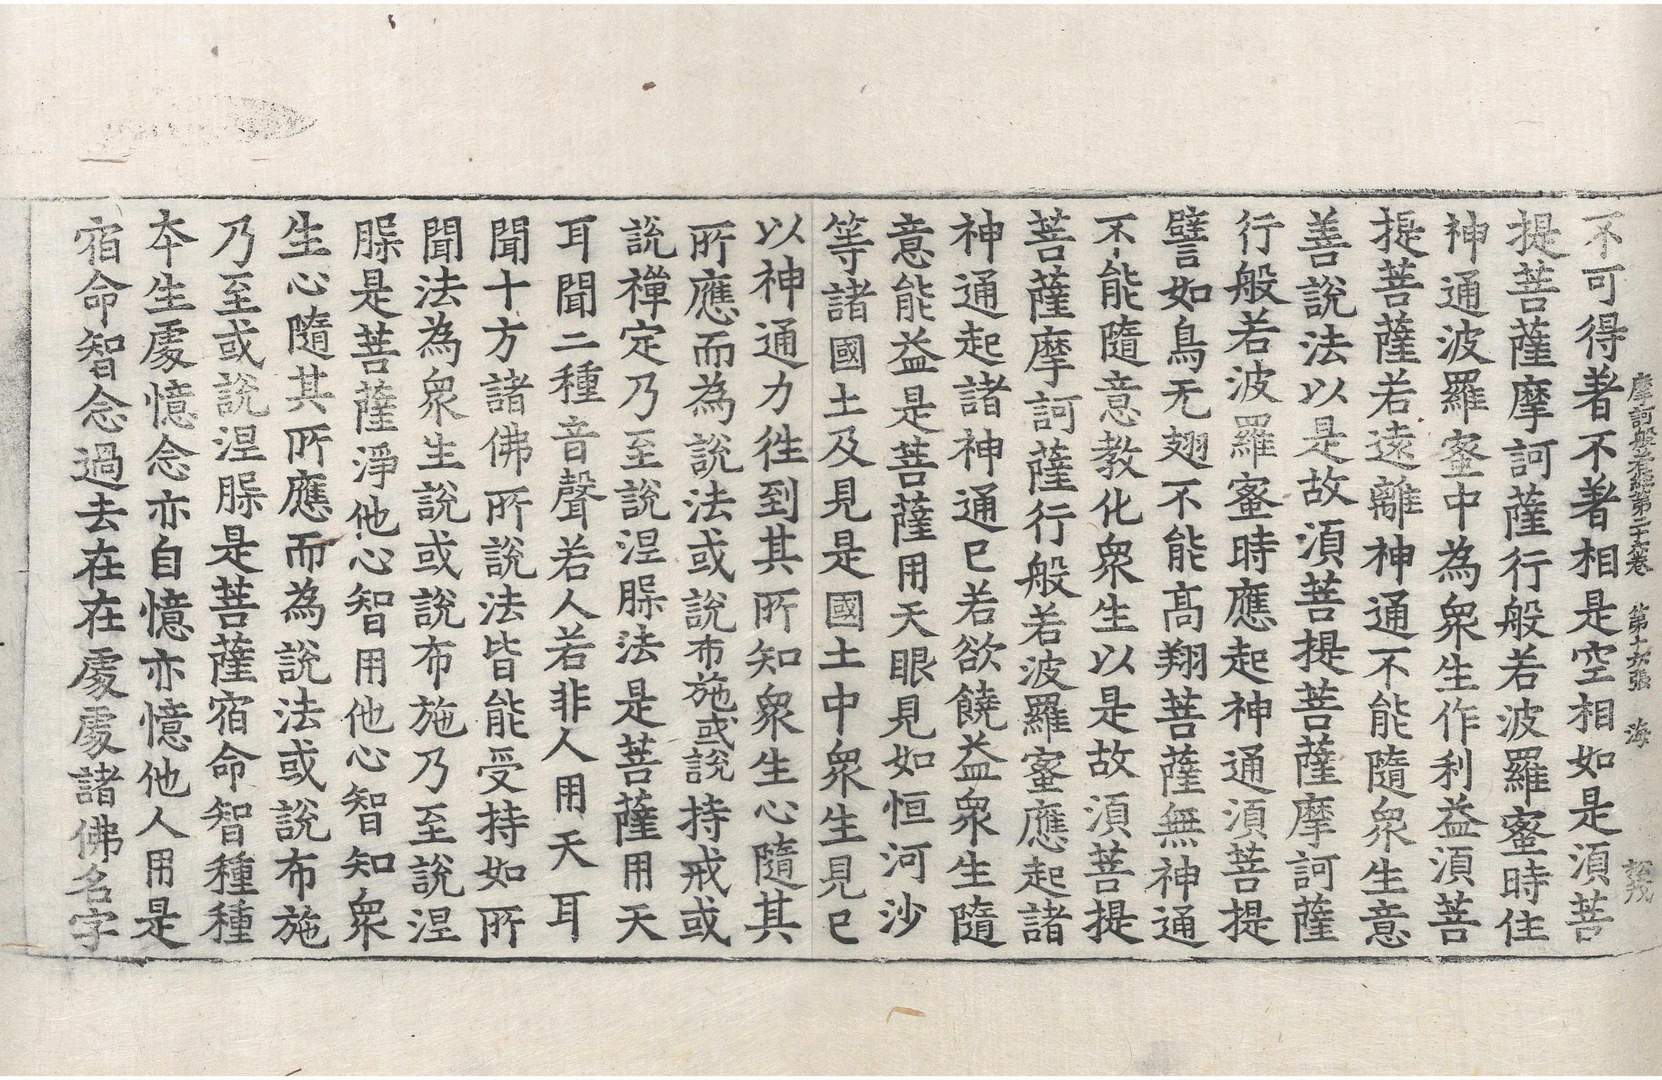 摩訶般若經第二十六卷　第十九張　海
不可得著不著相是空相如是湏菩
提菩薩摩訶薩行般若波羅蜜時住
神通波羅蜜中為衆生作利益湏菩
提菩薩若遠離神通不能隨衆生意
善說法以是故湏菩提菩薩摩訶薩
行般若波羅蜜時應起神通湏菩提
譬如鳥无翅不能高翔菩薩無神通
不能隨意教化衆生以是故湏菩提
菩薩摩訶薩行般若波羅蜜應起諸
神通起諸神通已若欲饒益衆生隨
意能益是菩薩用天眼見如恒河沙
等諸國土及見是國土中衆生見已
以神通力徃到其所知衆生心隨其
所應而為說法或說布施或說持戒或
說禪定乃至說涅槃法是菩薩用天
耳聞二種音聲若人若非人用天耳
聞十方諸佛所說法皆能受持如所
聞法為衆生說或說布施乃至說涅
槃是菩薩淨他心智用他心智知衆
生心隨其所應而為說法或說布施
乃至或說涅槃是菩薩宿命智種種
本生處憶念亦自憶亦憶他人用是
宿命智念過去在在處處諸佛名字